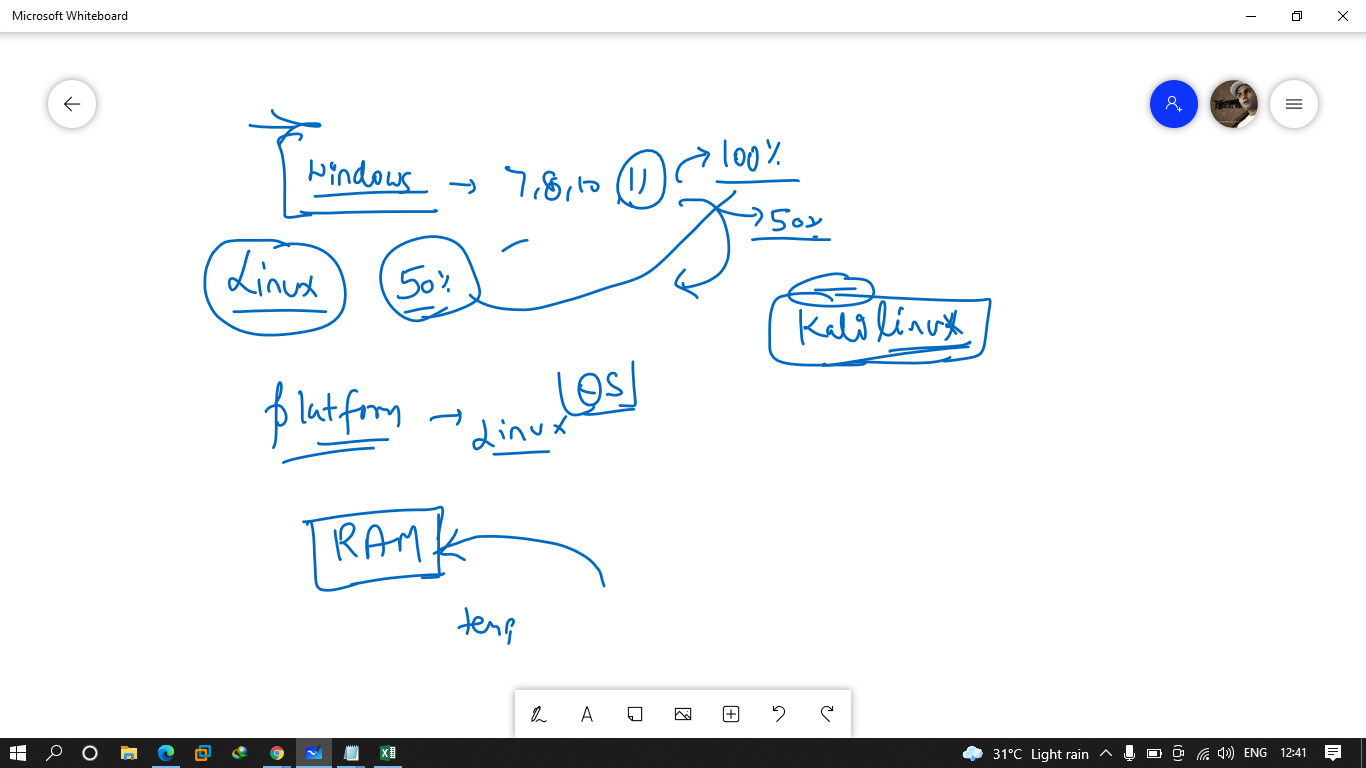 Microsoft Whiteboard
windows → 7,8,10 11 → 100%
→ 50%
Linux 50%
Kali linux
platform → Linux OS
RAM
temp
31°C Light rain ENG 12:41